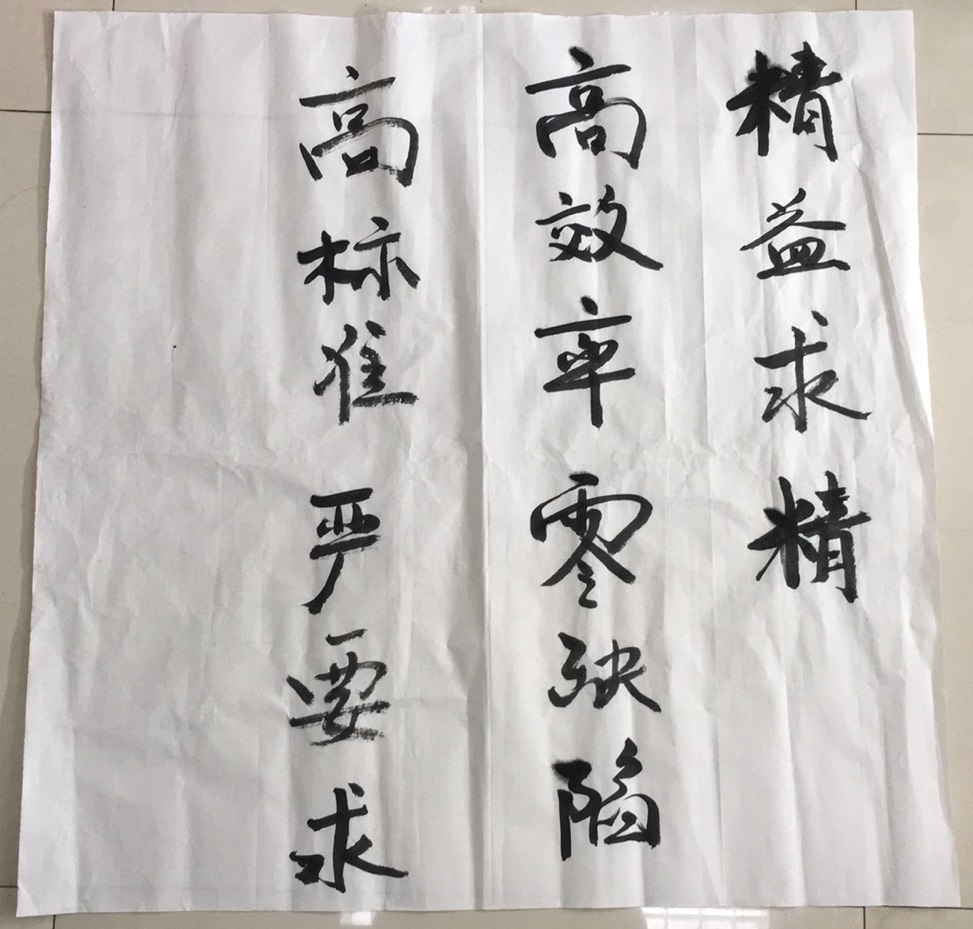 精益求精
高效率零缺陷
高标准严要求